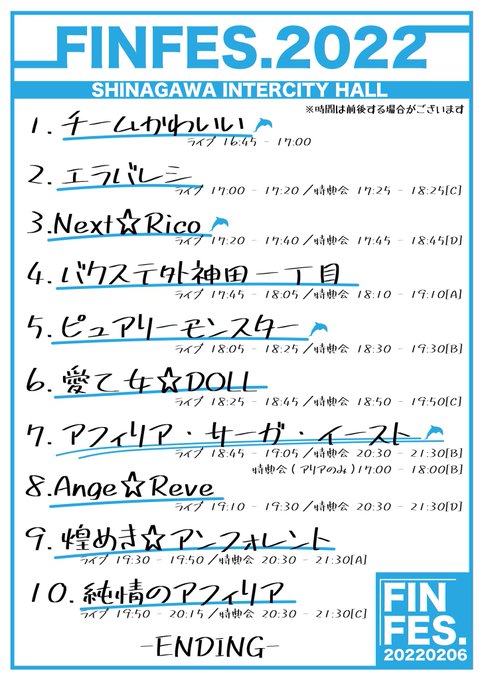 FINFES.2022
SHINAGAWA INTERCITY HALL
※時間は前後する場合がございます
1. チームかわいい
ライブ 16:45 - 17:00
2. エラバレシ
ライブ 17:00 - 17:20 /特典会 17:25 - 18:25[C]
3.Next☆Rico
ライブ 17:20 - 17:40 /特典会 17:45 - 18:45[D]
4. バクステ外神田一丁目
ライブ 17:45 - 18:05 /特典会 18:10 - 19:10[A]
5. ピュアリーモンスター
ライブ 18:05 - 18:25 /特典会 18:30 - 19:30[B]
6. 愛乙女☆DOLL
ライブ 18:25 - 18:45 /特典会 18:50 - 19:50[C]
7. アフィリア・サーガ・イースト
ライブ 18:45 - 19:05 /特典会 20:30 - 21:30[B]
特典会 ( アリアのみ )17:00 - 18:00[B]
8.Ange☆Reve
ライブ 19:10 - 19:30 /特典会 20:30 - 21:30[D]
9. 煌めき☆アンフォレント
ライブ 19:30 - 19:50 /特典会 20:30 - 21:30[A]
10. 純情のアフィリア
ライブ 19:50 - 20:15 /特典会 20:30 - 21:30[C]
-ENDING-
FIN
FES.
20220206